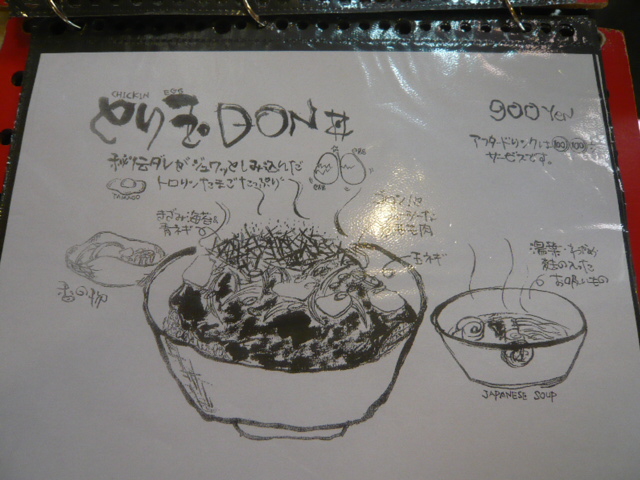 CHICKIN EGG
とり玉DON丼
900YEN
秘伝ダレがジュワッとしみ込んだ
トロリンたまごたっぷり
TAMAGO
アフタードリンクは
サービスです。
きざみ海苔&
青ネギ
玉ネギ
香の物
の入った
お吸いもの
JAPANESE SOUP